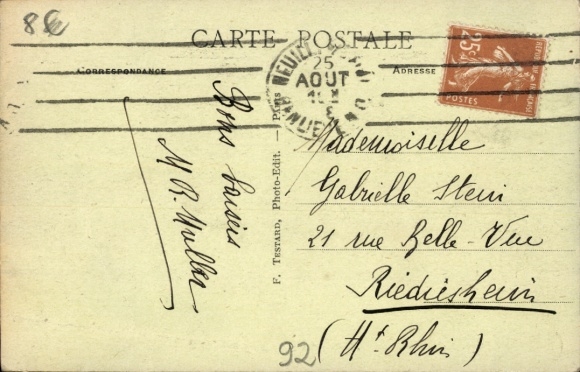 86
CARTE POSTALE
CORRESPONDANCE
ADRESSE
25
AOUT
25c
POSTES
Bons baisers
M R. Muller
F. TESTARD, Photo-Edit. — Paris
Mademoiselle
Gabrielle Stein
21 rue Belle-Vue
Riedisheim
(Ht Rhin)
92